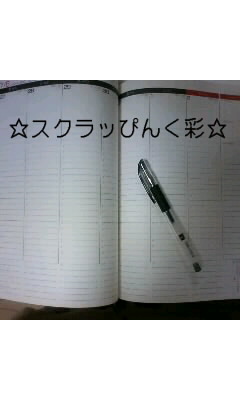 ☆スクラッぴんく彩☆